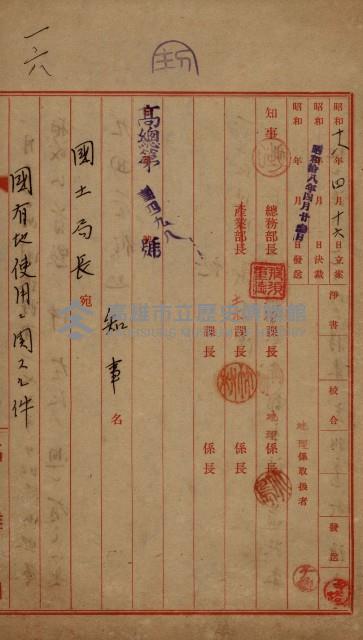 一六八
昭和十八年四月十六日立案
昭和 年 月 日決裁
昭和拾八年四月廿 日
昭和 年 月 日發送
淨書
校合
發送
地理係取扱者
知事
總務部長
產業部長
課長
課長
地理係長
係長
高總第 四九八號
知事名
國土局長宛
國有地使用ニ関スル件
高雄市立歷史博物館